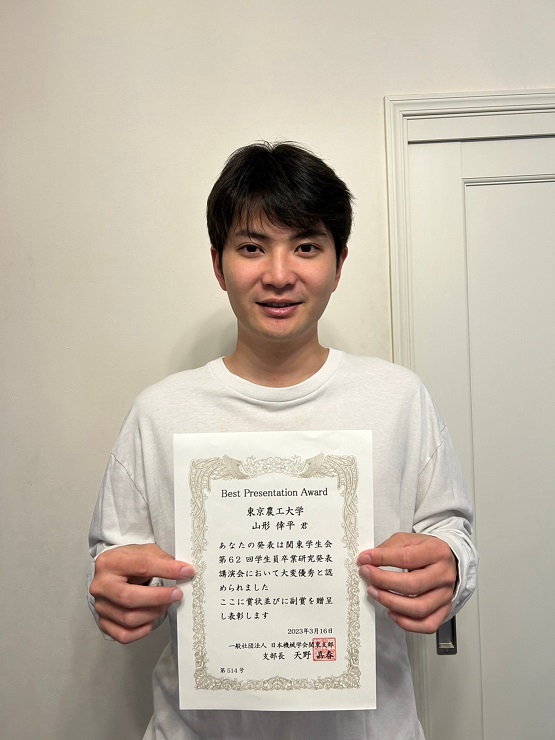 Best Presentation Award
東京農工大学
山形 倖平 君
あなたの発表は関東学生会
第62回学生員卒業研究発表
講演会において大変優秀と認
められました
ここに賞状並びに副賞を贈呈
し表彰します
2023年3月16日
一般社団法人 日本機械学会関東支部
支部長 天野 嘉春
第514号